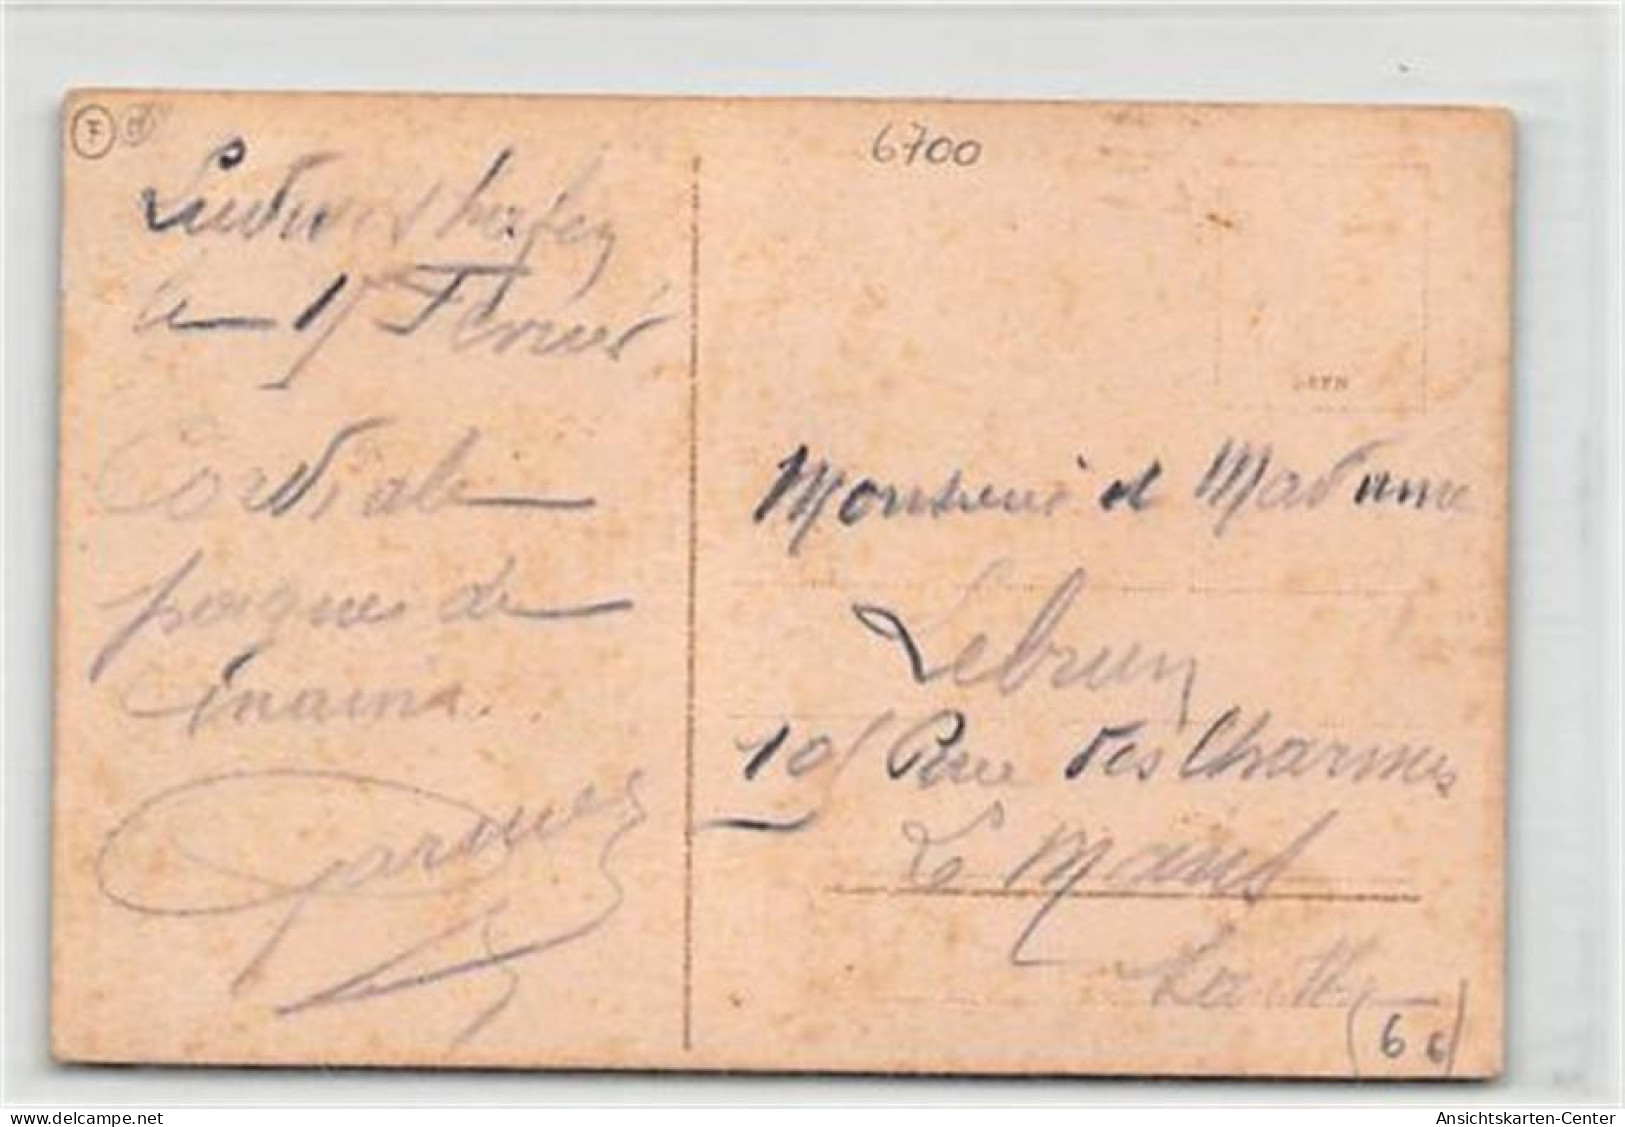 F
6700
Ludwigshafen
le 17 Février
Cordiale
poignée de
mains.
Monsieur et Madame
Lebrun
10 Rue des Charmes
Le Mans
Sarthe
6 6
Ansichtskarten-Center